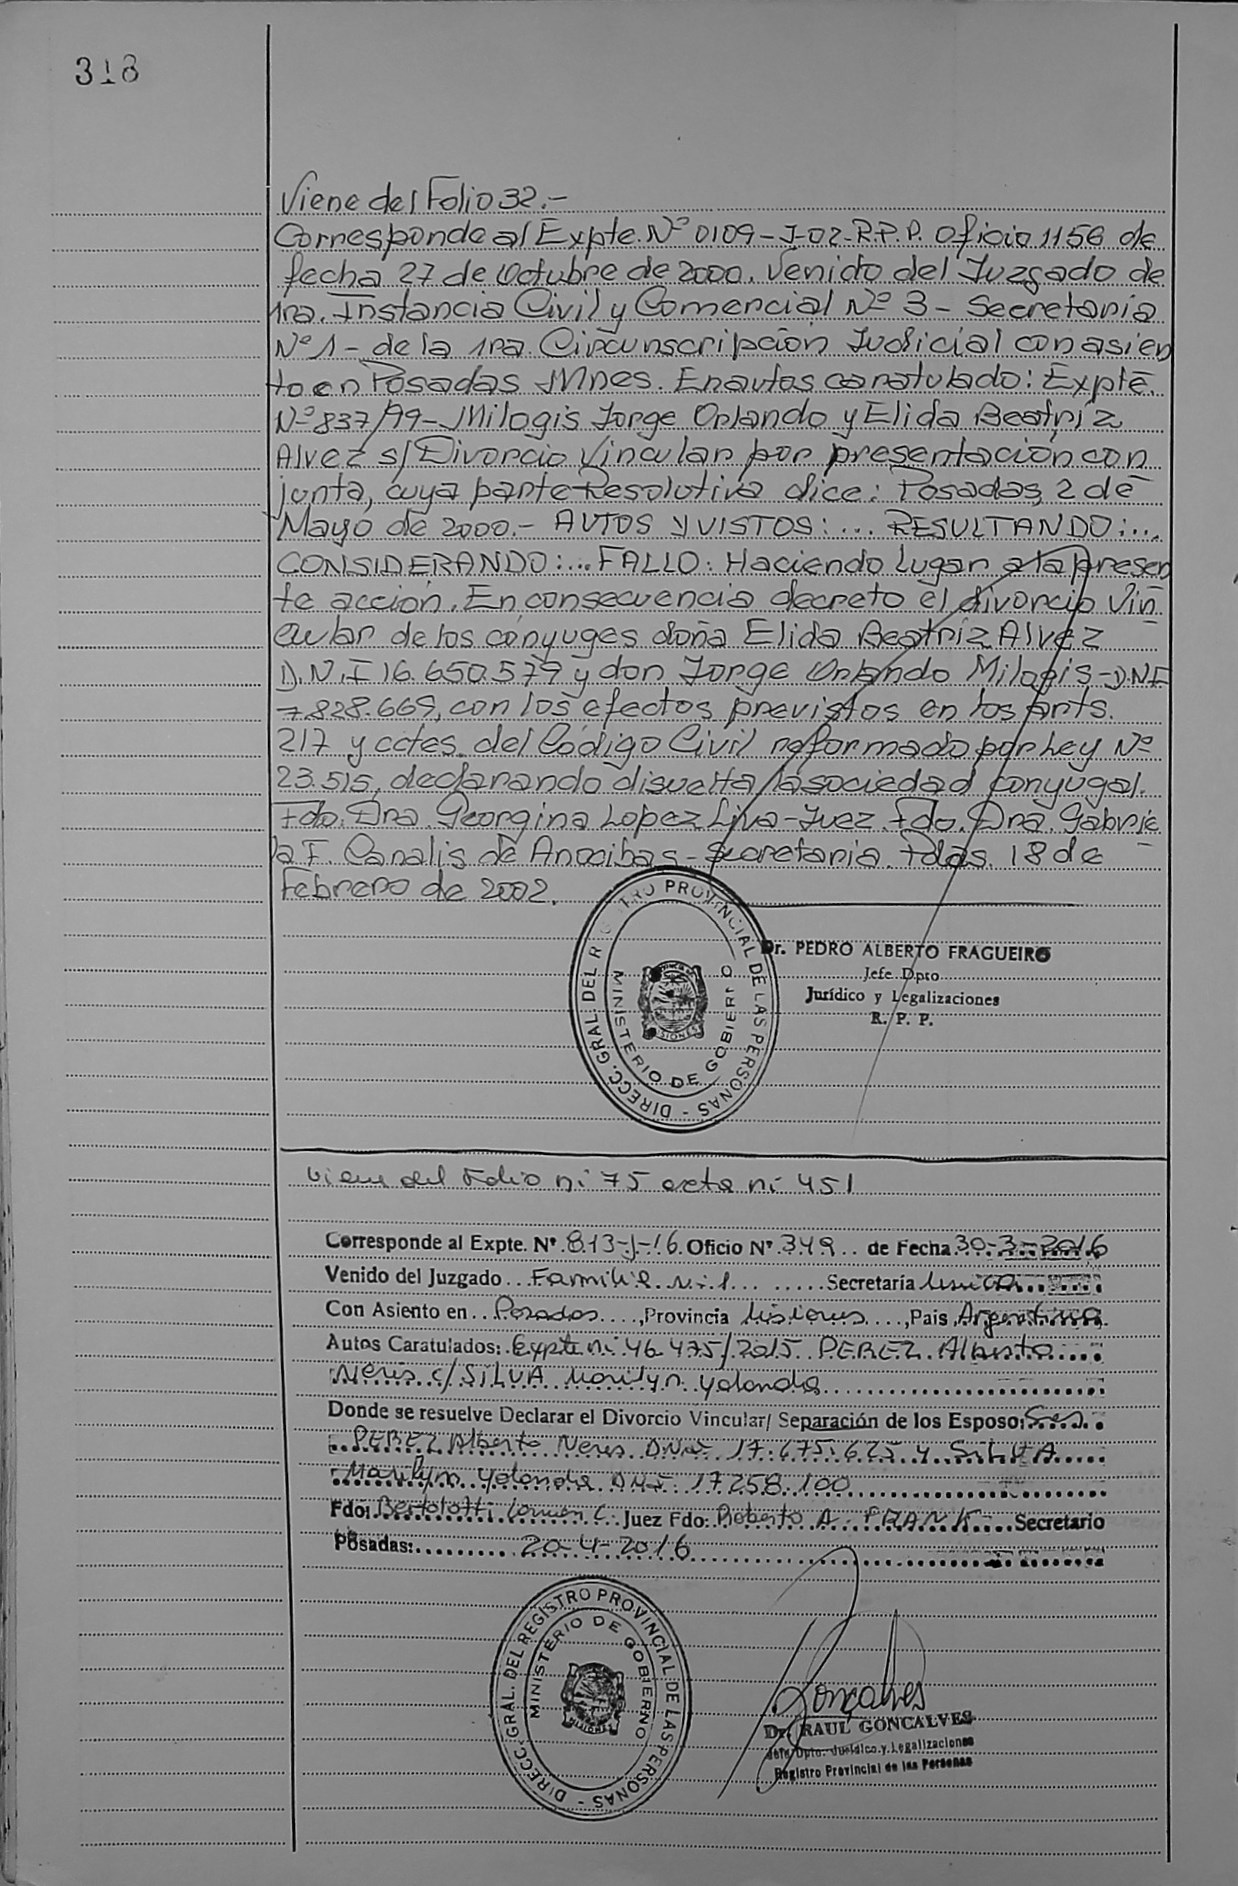 318
Viene del Folio 32.-
Corresponde al Expte. Nº 0109-J-02-R.P.P. Oficio 1156 de
fecha 27 de Octubre de 2000. Venido del Juzgado de
1ra. Instancia Civil y Comercial Nº 3 - Secretaria
Nº 1 - de la 1ra. Circunscripción Judicial con asien
to en Posadas Mnes. En autos caratulado: Expte.
Nº 837/99 - Milogis Jorge Orlando y Elida Beatriz
Alvez s/ Divorcio Vincular por presentación con
junta, cuya parte Resolutiva dice: Posadas, 2 de
Mayo de 2000.- AUTOS Y VISTOS:... RESULTANDO:....
CONSIDERANDO:... FALLO: Haciendo lugar a la presen
te acción. En consecuencia decreto el divorcio Vin
cular de los cónyuges doña Elida Beatriz Alvez
D.N.I 16.650.579 y don Jorge Orlando Milogis - D.N.I
7.828.669, con los efectos previstos en los arts.
217 y cctes. del Código Civil reformado por Ley Nº
23.515, declarando disuelta la sociedad conyugal.
Fdo. Dra. Georgina Lopez Liva - Juez. Fdo. Dra. Gabrie
la F. Canalis de - Secretaria. Pdas. 18 de
Febrero de 2002.
DIRECC. GRAL. DEL REGISTRO PROVINCIAL DE LAS PERSONAS -
MINISTERIO DE GOBIERNO
MISIONES
Dr. PEDRO ALBERTO FRAGUEIRO
Jefe Dpto
Jurídico y Legalizaciones
R. P. P.
Viene del Folio nº 75 acta nº 451
Corresponde al Expte. Nº 813-J-16. Oficio Nº 349 de Fecha 30-3-2016
Venido del Juzgado Familia nº 1 Secretaría Unica
Con Asiento en Posadas, Provincia Misiones, País Argentina
Autos Caratulados: Expte nº 46475/2015 PEREZ Alberto
Neris c/ SILVA Marilyn Yolanda
Donde se resuelve Declarar el Divorcio Vincular/ Separación de los Esposo: Sres.
PEREZ Alberto Neris DNI 17.675.625 y SILVA
Marilyn Yolanda DNI 17.258.100
Fdo: Bertolotti Carmen C. Juez Fdo: Roberto A. FRANK Secretario
Posadas: 20-4-2016
DIRECC. GRAL. DEL REGISTRO PROVINCIAL DE LAS PERSONAS -
MINISTERIO DE GOBIERNO
MISIONES
Goncalves
Dr. RAUL GONCALVES
Jefe Dpto. Jurídico y Legalizaciones
Registro Provincial de las Personas